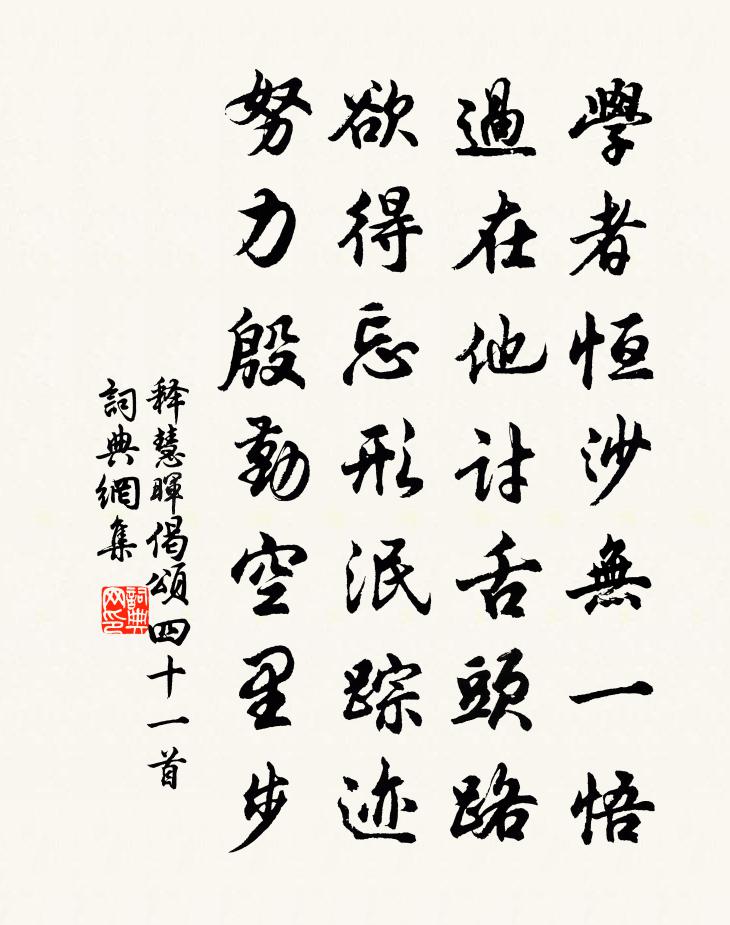 學者恆沙無一悟
過在他討舌頭路
欲得忘形泯踪迹
努力殷勤空里步
释慧暉偈頌四十一首
詞典網集
詞典网印